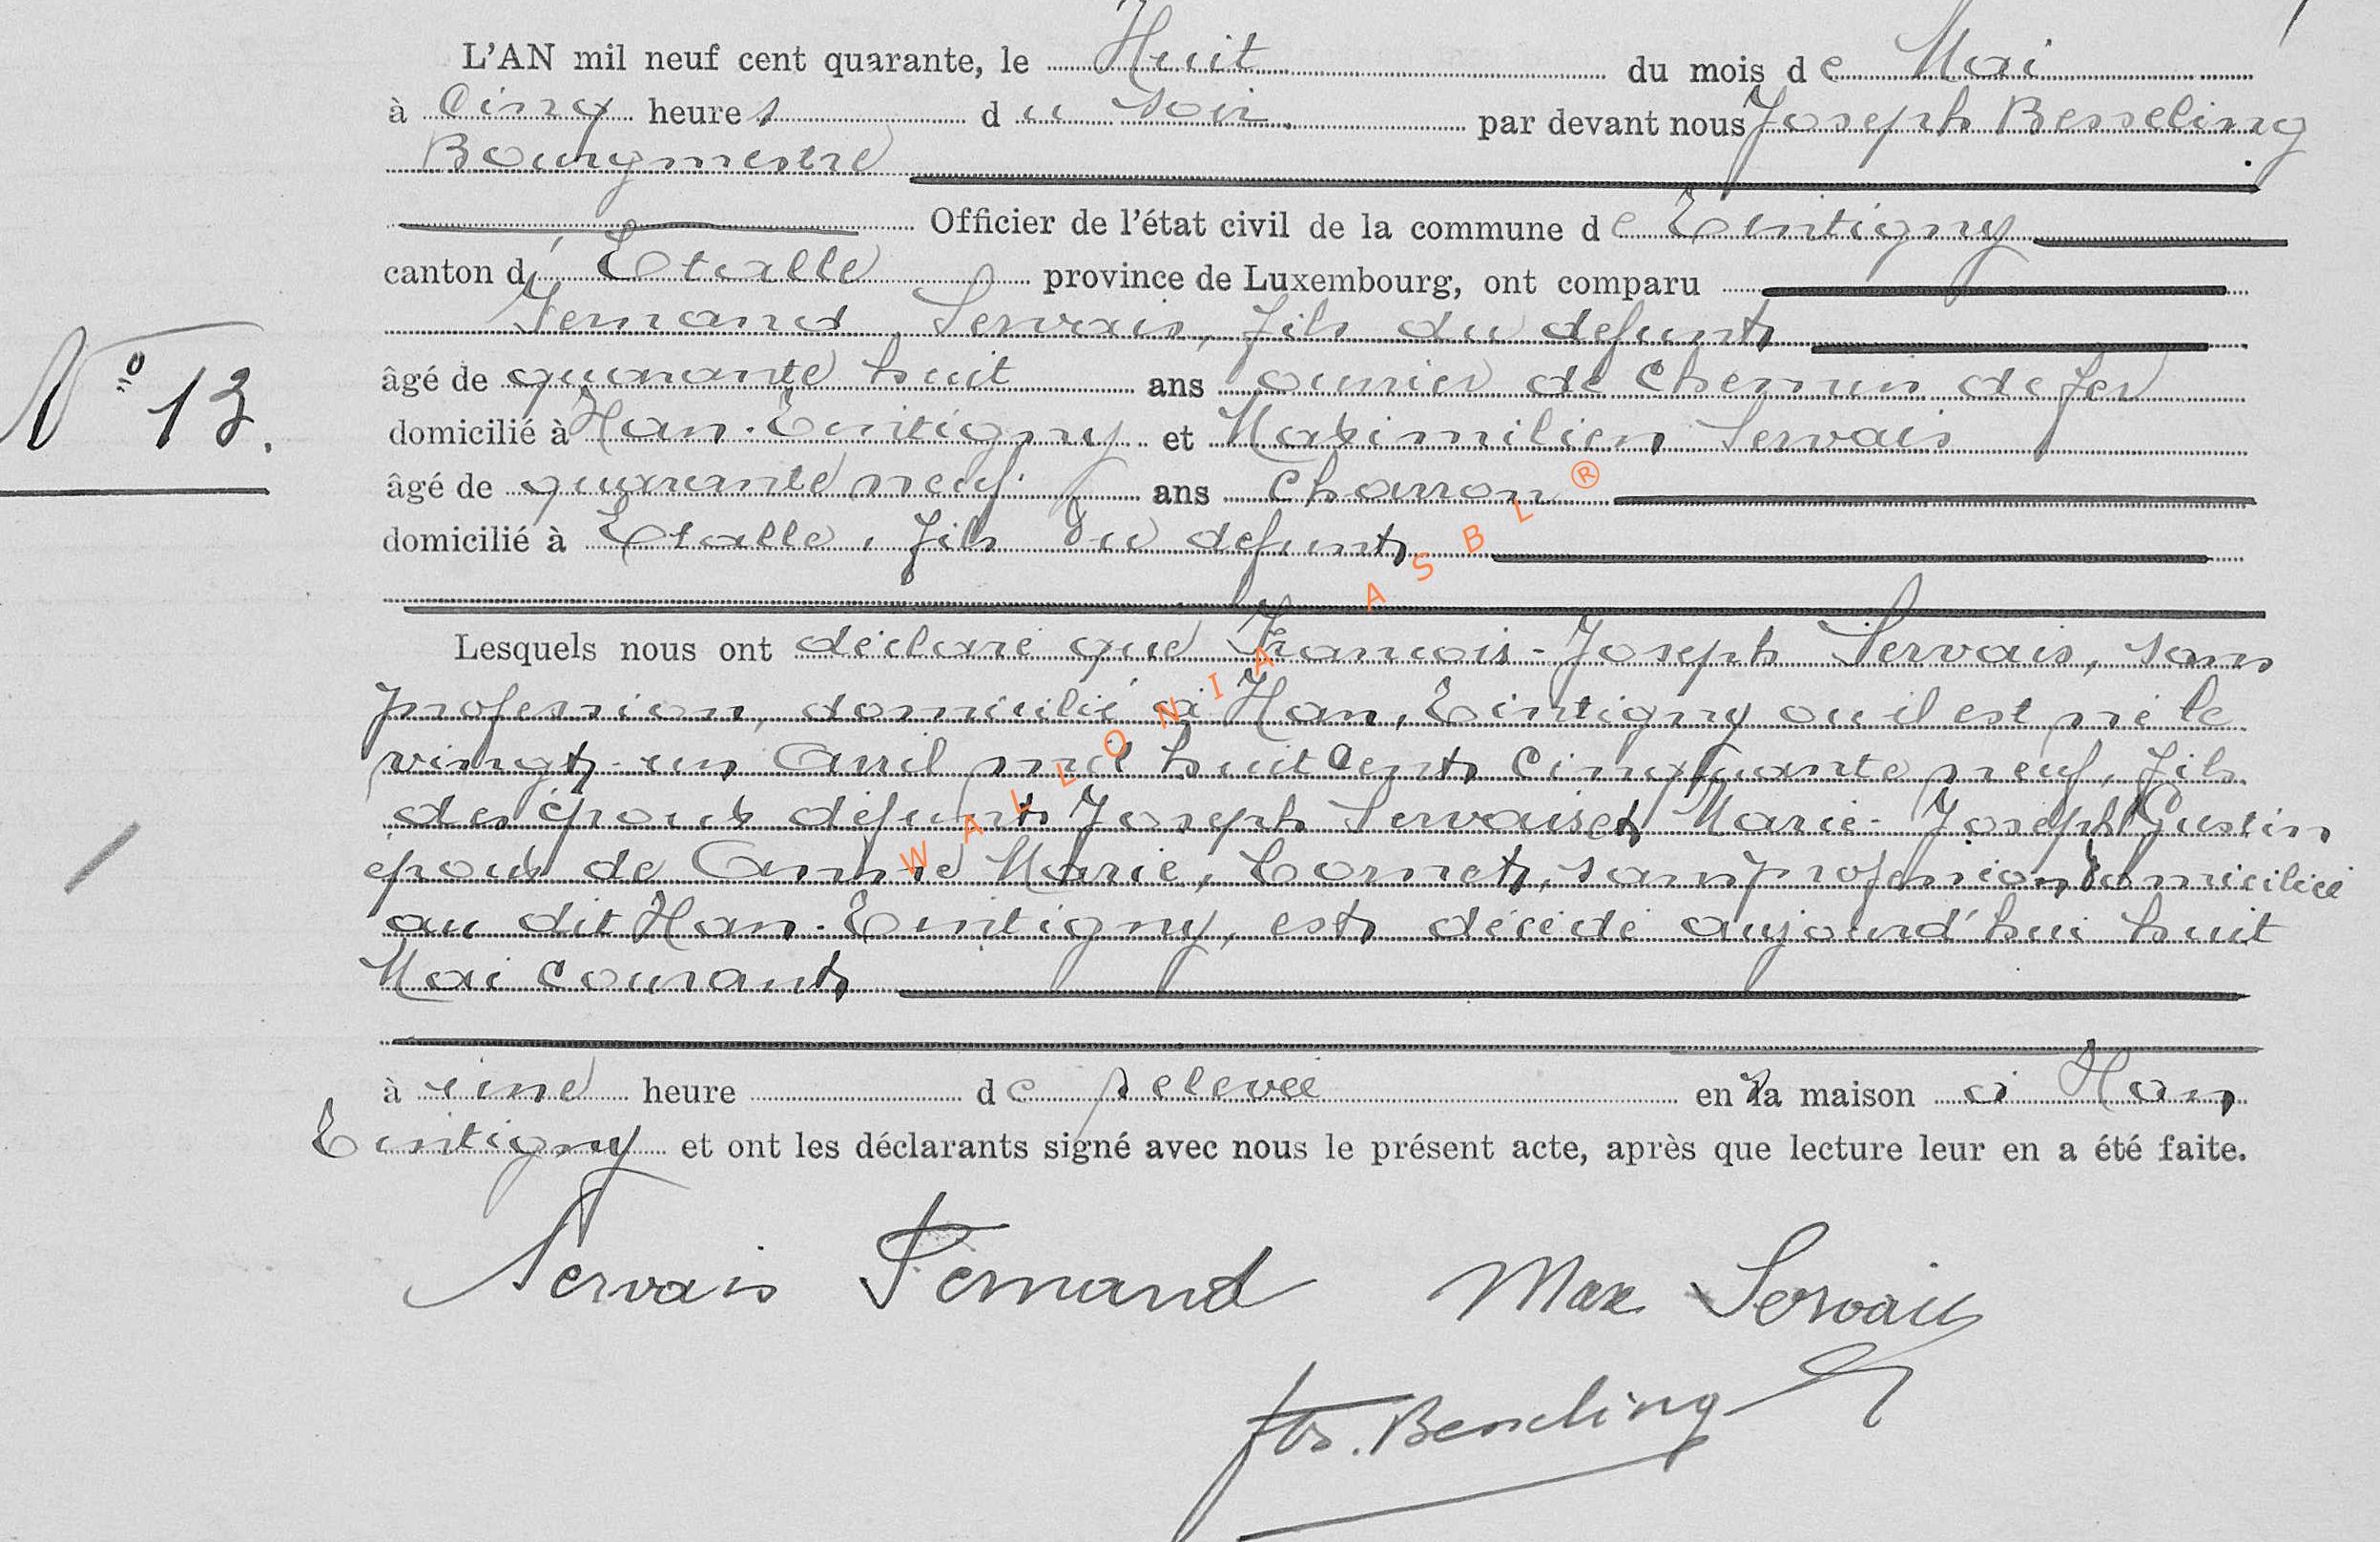 L'AN mil neuf cent quarante, le Huit du mois de Mai
à Cinq heures du soir. par devant nous Joseph Besseling
Bourgmestre
Officier de l'état civil de la commune de Tintigny
canton d'Etalle province de Luxembourg, ont comparu
Fernand Servais, fils du defunt
N° 13.
âgé de quarante huit ans ouvrier de chemin de fer
domicilié à Han-Tintigny et Maximilien Servais
âgé de quarante neuf ans charron
domicilié à Etalle, fils du defunt
Lesquels nous ont déclaré que Francois-Joseph Servais, sans
profession, domicilié à Han, Tintigny ou il est né le
vingt-un Avril mil huit Cent Cinquante neuf, fils
des époux défunts Joseph Servais et Marie-Joseph Gustin
époux de Anne Marie, Cornet, sans profession domiciliée
au dit Han-Tintigny, est décédé aujourd'hui huit
Mai courant
à une heure de relevée en sa maison à Han
Tintigny et ont les déclarants signé avec nous le présent acte, après que lecture leur en a été faite.
Servais Fernand Max Servais
Jos. Besseling
WALLONIA ASBL ®